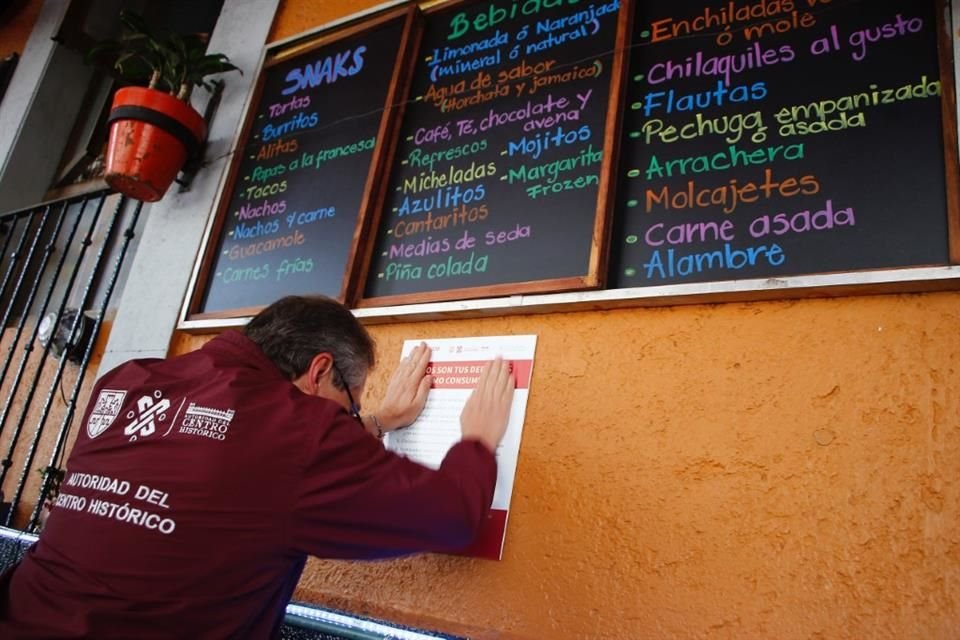 SNAKS
- Tortas
- Burritos
- Alitas
- Papas a la francesa
- Tacos
- Nachos
- Nachos c/ carne
- Guacamole
- Carnes frías
Bebidas
- Limonada ó Naranjada
(mineral ó natural)
- Agua de sabor
(Horchata y jamaica)
- Café, Té, chocolate y
avena
- Refrescos
- Micheladas
- Azulitos
- Cantaritos
- Medias de seda
- Piña colada
- Mojitos
- Margarita
Frozen
- Enchiladas
ó mole
- Chilaquiles al gusto
- Flautas
- Pechuga empanizada
ó asada
- Arrachera
- Molcajetes
- Carne asada
- Alambre
SON TUS
CONSUM
AUTORIDAD DEL
CENTRO
HISTÓRICO
AUTORIDAD DEL
CENTRO HISTÓRICO